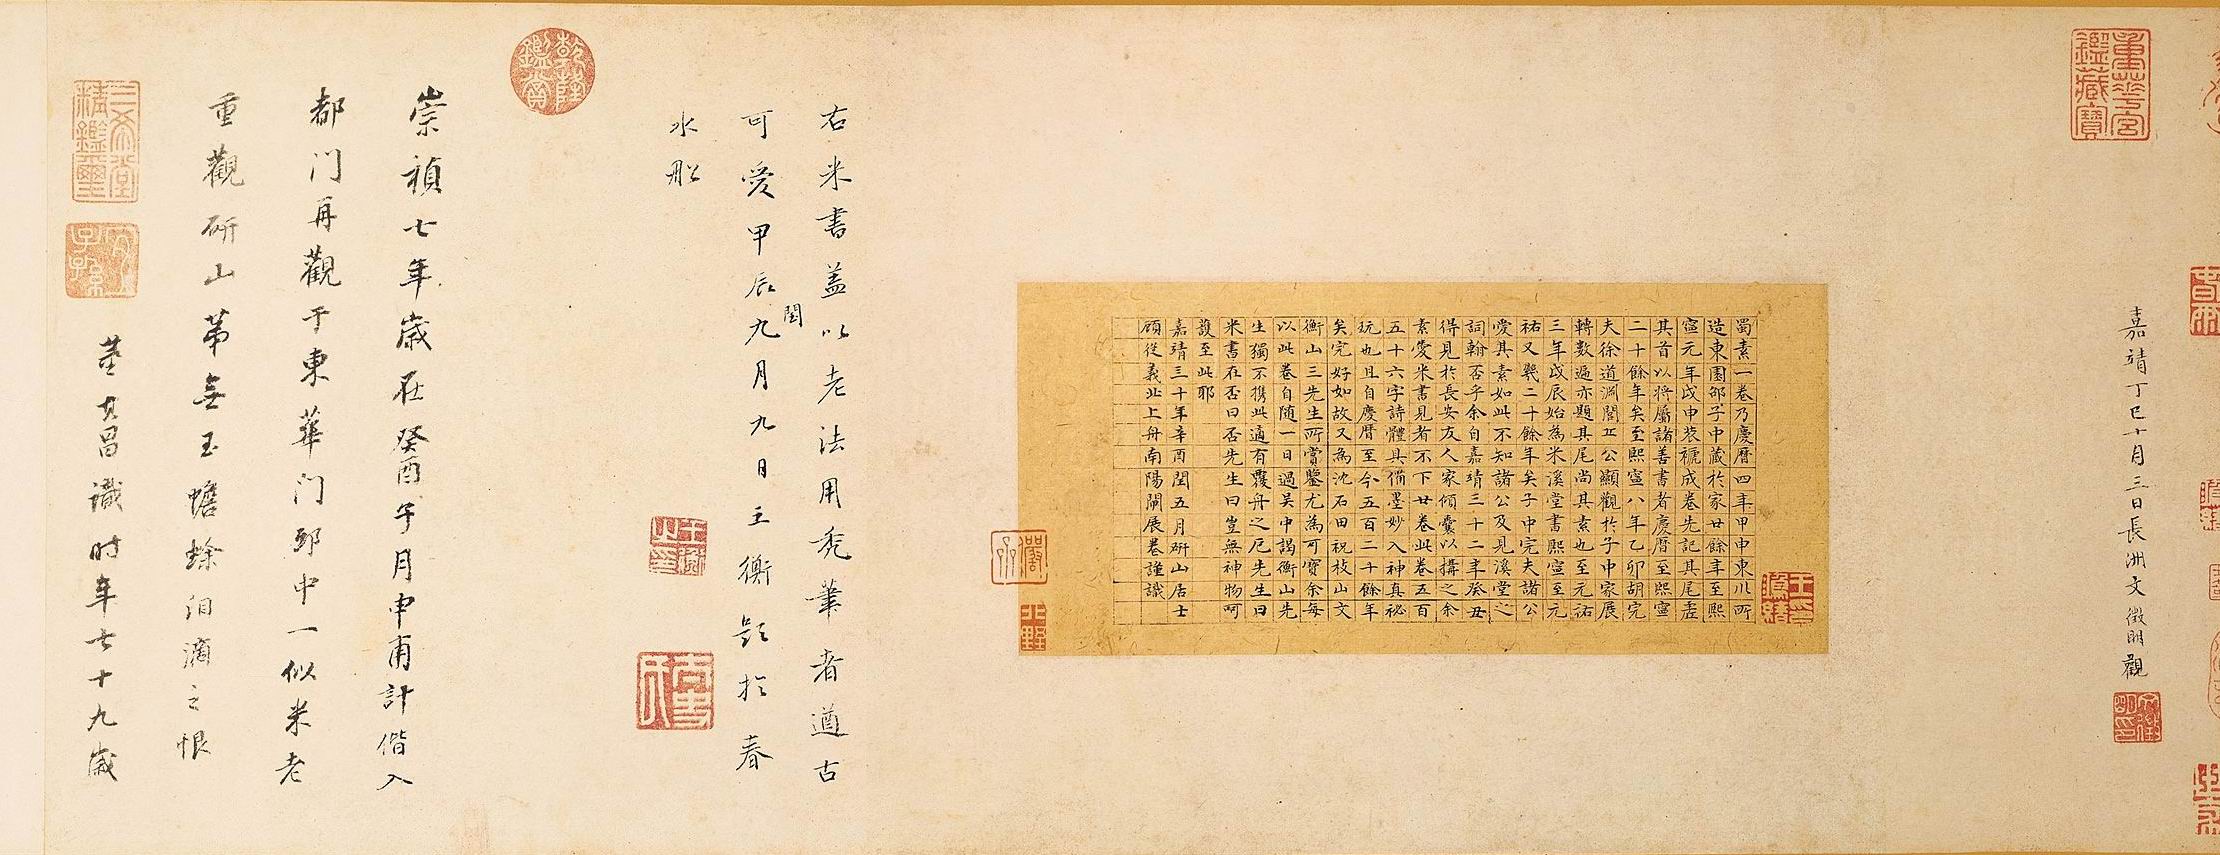 重華宮鑑藏寶
嘉靖丁巳十月三日長洲文徵明觀
蜀素一卷乃慶曆四年甲申東川所
造東園邵子中藏於家廿餘年至熙
寧元年戊申裝褫成卷先記其尾虛
其首以將屬諸善書者慶曆至熙寧
二十餘年矣至熙寧八年乙卯胡完
夫徐道淵閭丘公顯觀於子中家展
轉數過亦題其尾尚其素也至元祐
三年戊辰始為米溪堂書熙寧至元
祐又幾二十餘年矣子中完夫諸公
愛其素如此不知諸公及見溪堂之
詞翰否乎余自嘉靖三十二年癸丑
得見於長安友人家傾囊以搆之余
素愛米書見者不下廿卷此卷五百
五十六字詩體具備墨妙入神真祕
玩也且自慶曆至今五百二十餘年
矣完好如故又為沈石田祝枝山文
衡山三先生所賞鑒尤為可寶余每
以此卷自隨一日過吳中謁衡山先
生獨不攜此適有覆舟之厄先生曰
米書在否曰否先生曰豈無神物呵
護至此耶
嘉靖三十年辛酉閏五月研山居士
顧從義北上舟南陽閘展卷謹識
右米書蓋以老法用禿筆者遒古
可愛甲辰閏九月九日王衡題於春
水船
乾隆鑑賞
崇禎七年歲在癸酉子月申甫計偕入
都門再觀于東華門邸中一似米老
重觀研山第無玉蟾蜍泪滴之恨
董其昌識時年七十九歲
三希堂精鑑璽
宜子孫